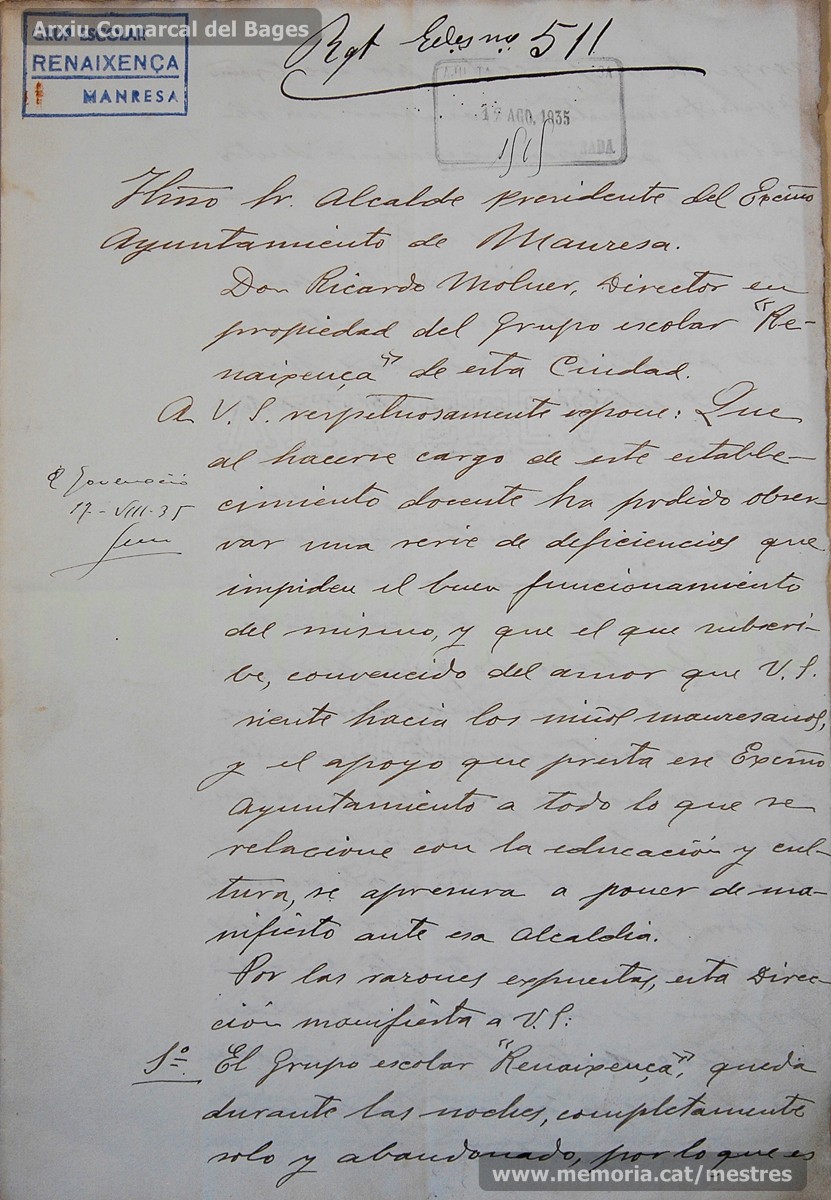 Arxiu Comarcal del Bages
GRUP ESCOLAR
RENAIXENÇA
MANRESA
Rgt 511
AGO. 1935
Ilmo Sr. Alcalde presidente del Excmo
Ayuntamiento de Manresa.
Don Ricardo Moliner, Director en
propiedad del Grupo escolar "Re-
naixença" de esta Ciudad.
A V. S. respetuosamente expone: Que
al hacerse cargo de este estable-
cimiento docente ha podido obser-
17-VIII-35
var una serie de deficiencias que
impiden el buen funcionamiento
del mismo, y que el que subscri-
be, convencido del amor que V. S.
siente hacia los niños manresanos,
y el apoyo que presta ese Excmo
Ayuntamiento a todo lo que se
relacione con la educación y cul-
tura, se apresura a poner de ma-
nifiesto ante esa Alcaldia.
Por las razones expuestas, esta Direc-
ción manifiesta a V. S:
1º El Grupo escolar "Renaixença", queda
durante las noches, completamente
solo y abandonado, por lo que es
www.memoria.cat/mestres